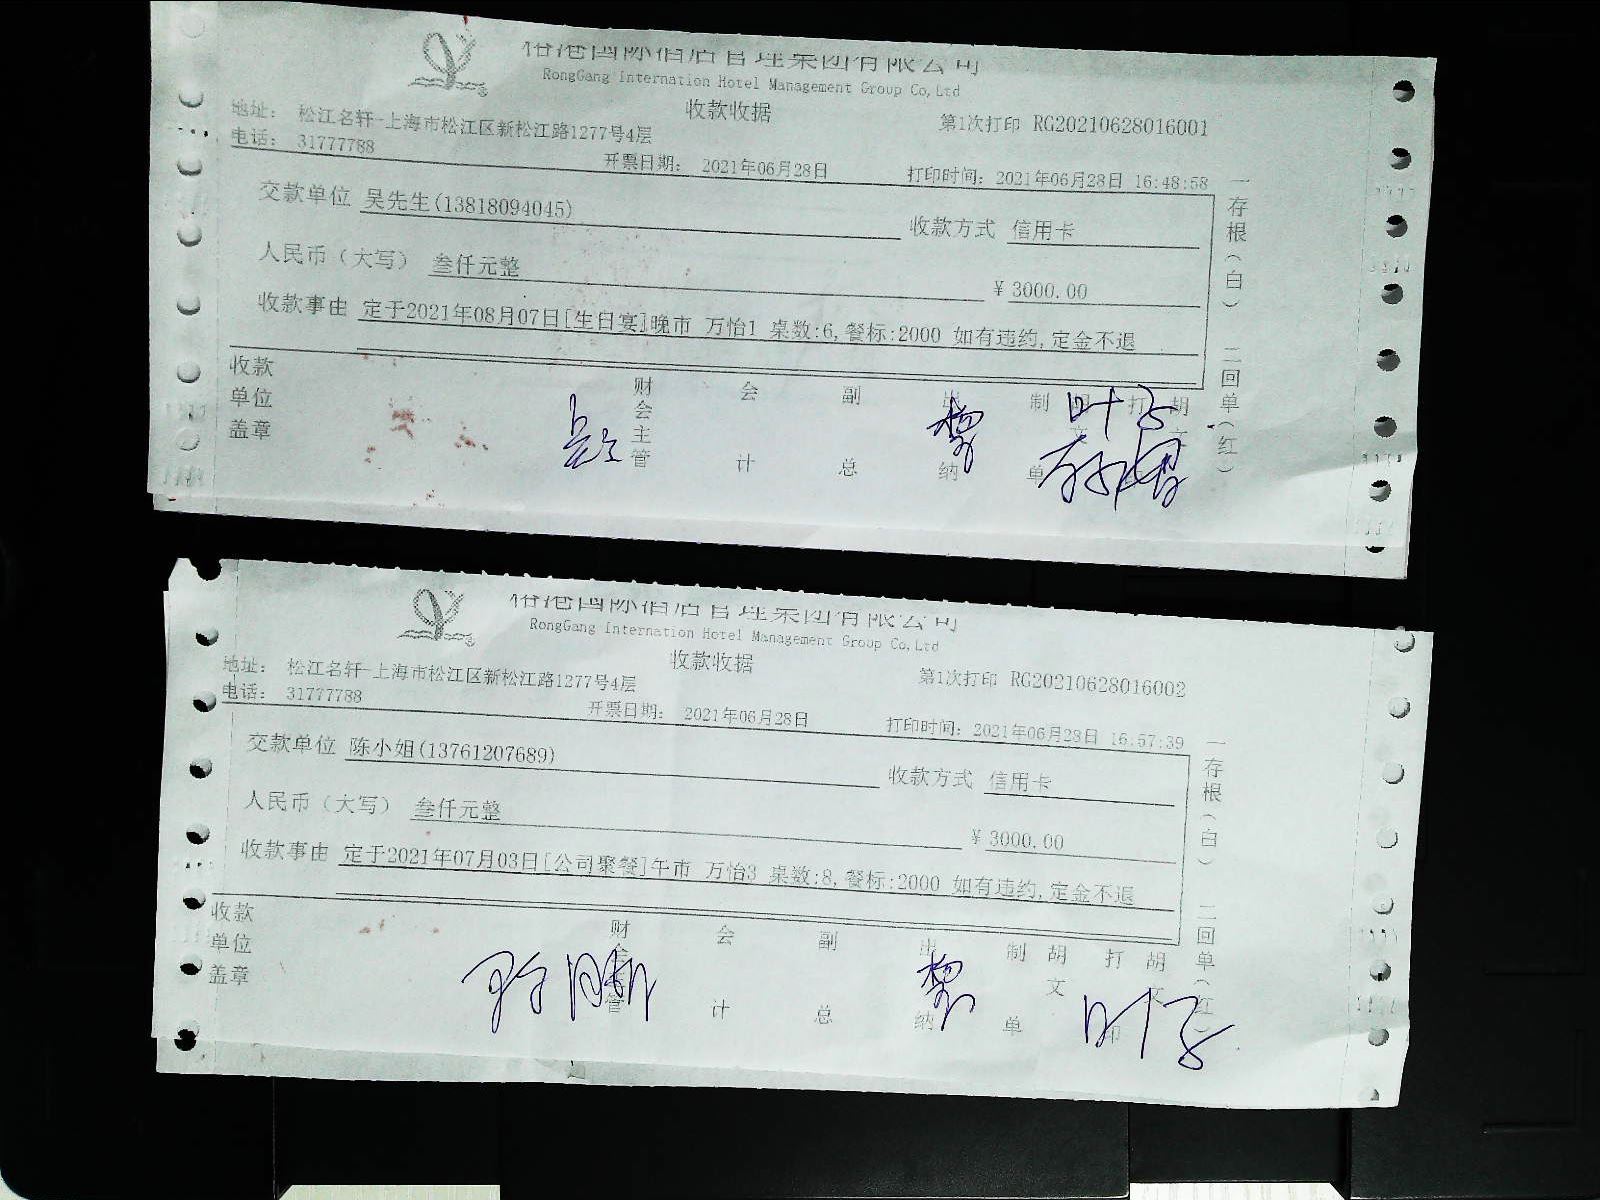 榕港国际酒店管理集团有限公司
RongGang Internation Hotel Management Group Co,Ltd
收款收据
地址： 松江名轩-上海市松江区新松江路1277号4层
第1次打印 RG20210628016001
电话： 31777788
开票日期： 2021年06月28日
打印时间：2021年06月28日 16:48:58
交款单位 吴先生(13818094045)
收款方式 信用卡
人民币（大写） 叁仟元整
¥ 3000.00
收款事由 定于2021年08月07日[生日宴]晚市 万怡1 桌数:6,餐标:2000 如有违约,定金不退
一存根（白） 二回单（红）
收款单位盖章
财会主管
会计
副总
出纳
制单
胡文
打印
胡文
叶子
榕港国际酒店管理集团有限公司
RongGang Internation Hotel Management Group Co,Ltd
收款收据
地址： 松江名轩-上海市松江区新松江路1277号4层
第1次打印 RG20210628016002
电话： 31777788
开票日期： 2021年06月28日
打印时间：2021年06月28日 16:57:39
交款单位 陈小姐(13761207689)
收款方式 信用卡
人民币（大写） 叁仟元整
¥ 3000.00
收款事由 定于2021年07月03日[公司聚餐]午市 万怡3 桌数:8,餐标:2000 如有违约,定金不退
一存根（白） 二回单（红）
收款单位盖章
财会主管
会计
副总
出纳
制单
胡文
打印
胡文
叶子